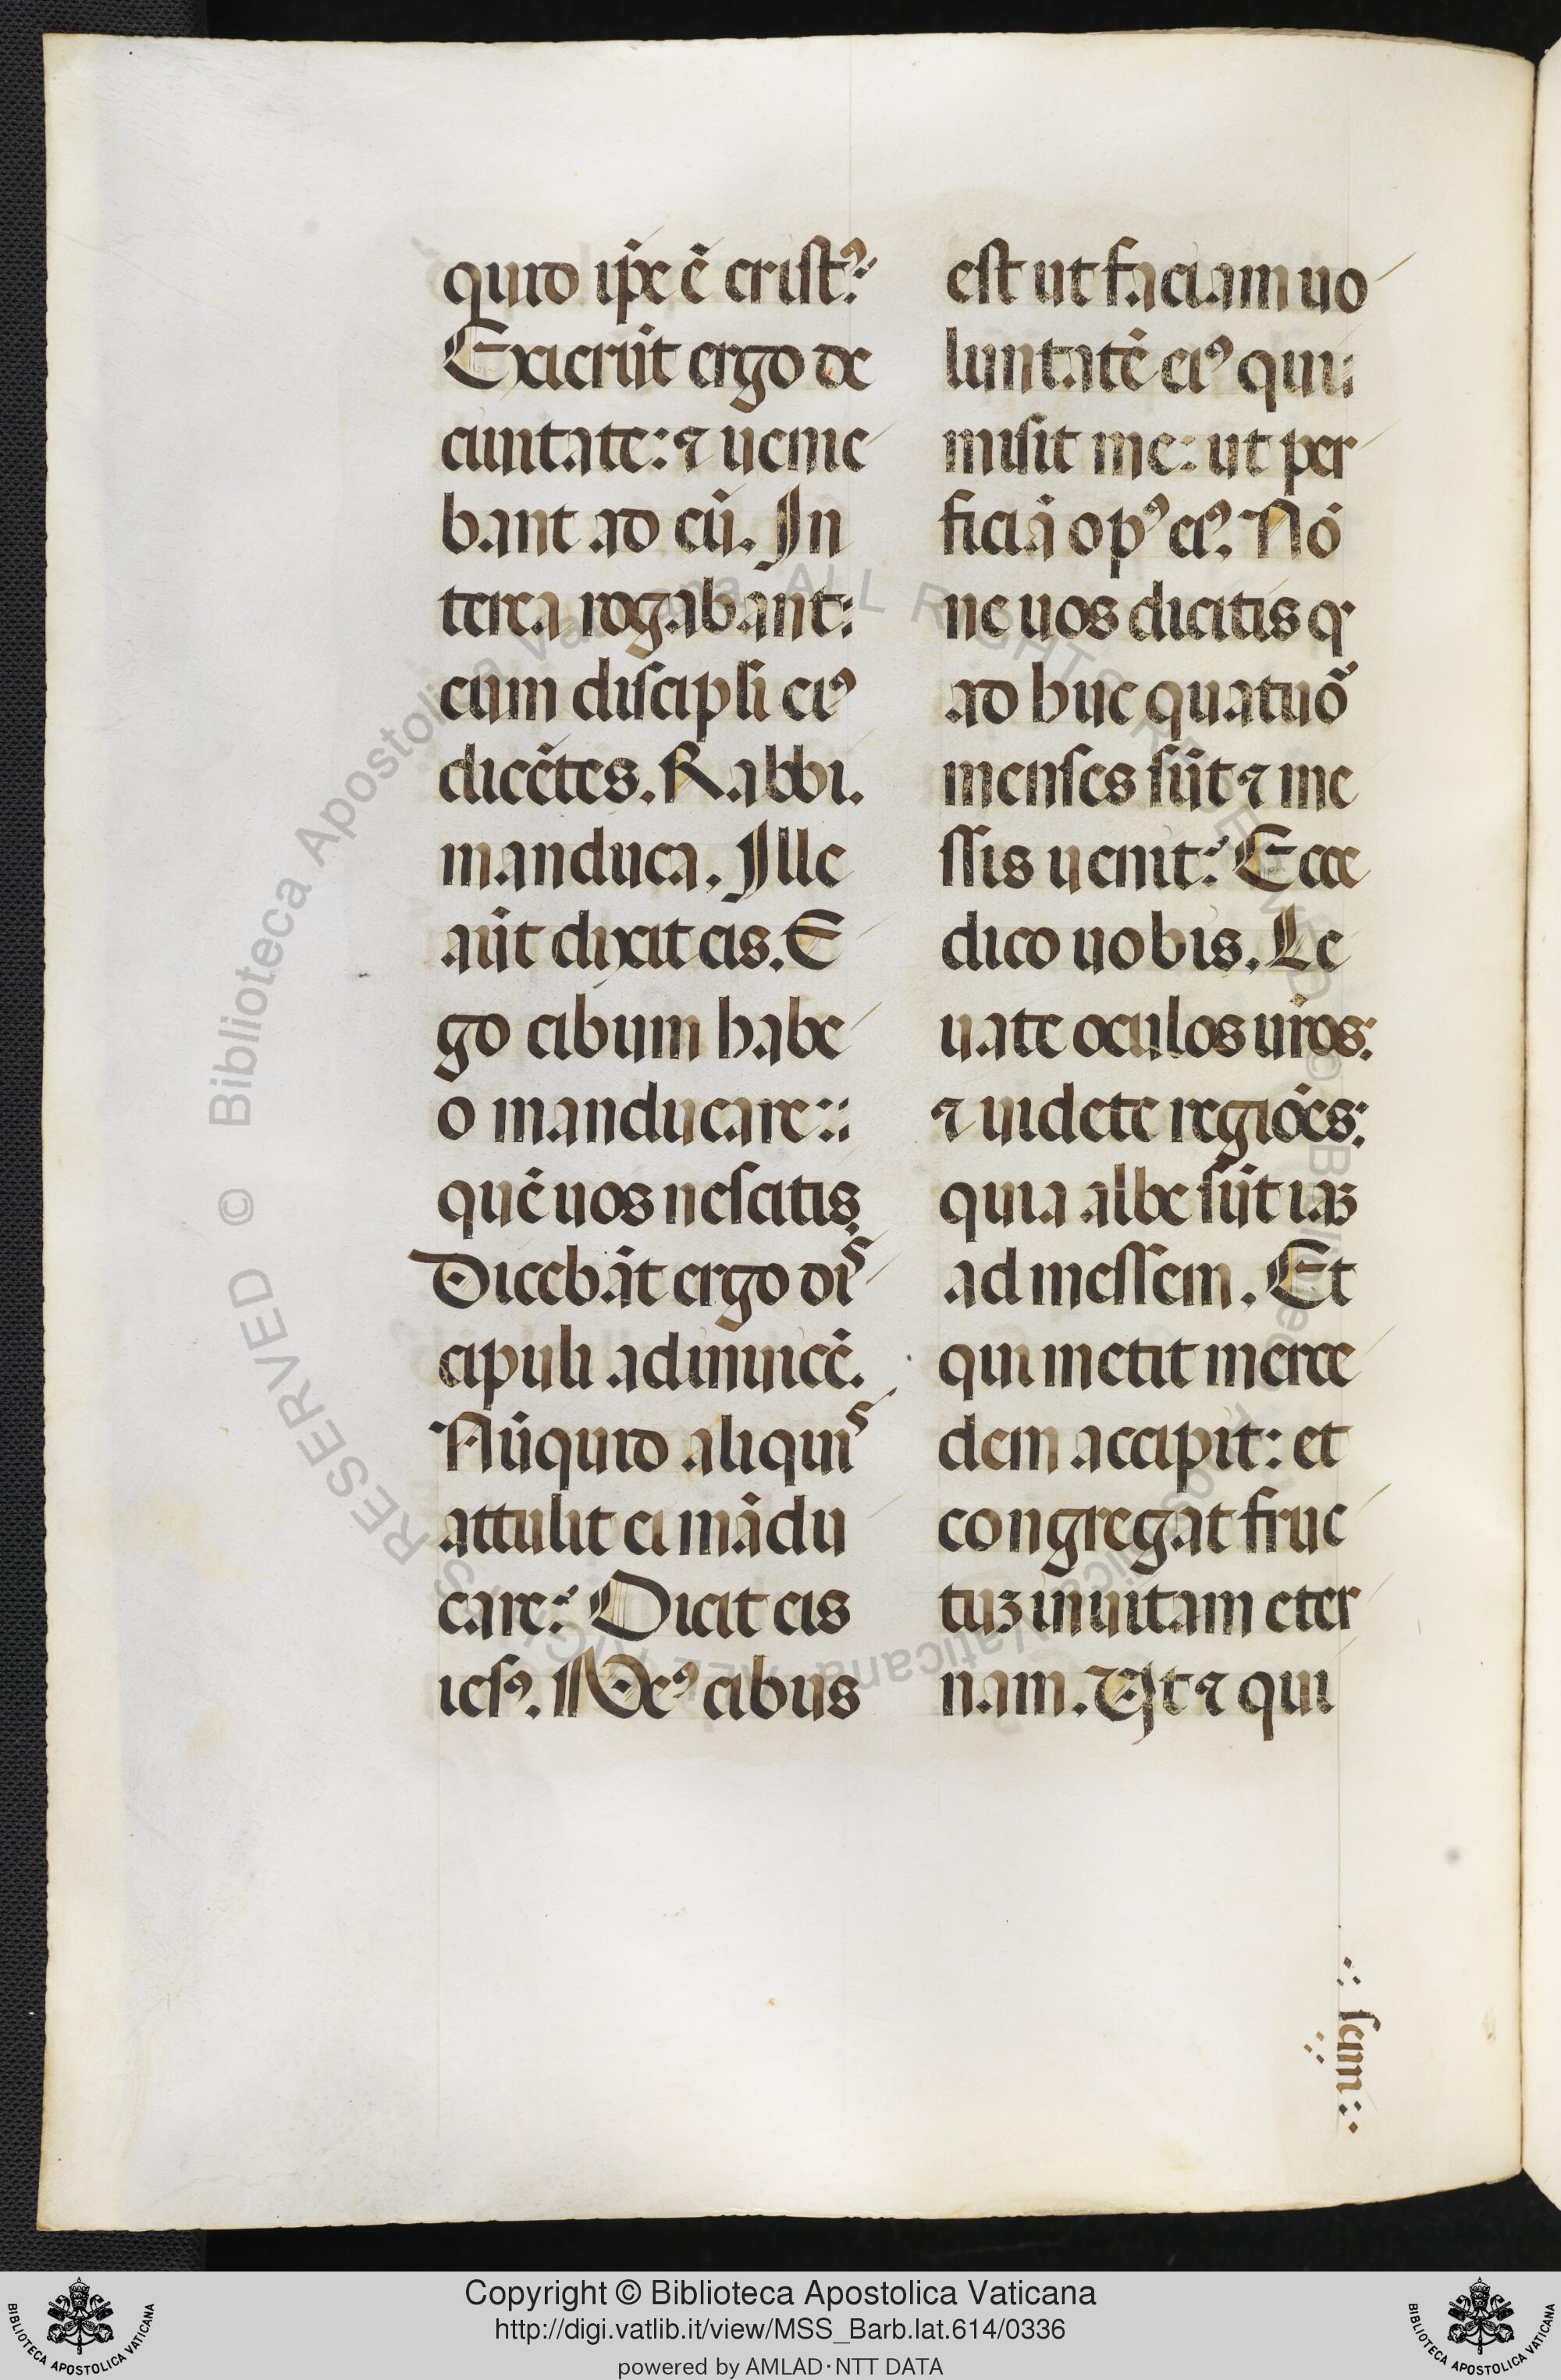 quid ip̄e ē cristꝰ?
Exierūt ergo de
ciuitate: ⁊ uenie
bant ad eū. In
terea rogabant:
eum discip̄li eiꝰ
dicētes. Rabbi.
manduca. Ille
aūt dixit eis. E
go cibum habe
o manducare::
quē uos nescitis.
Dicebāt ergo dis
cipuli adinuicē.
Nūquid aliquis
attulit ei mādu
care? Dicit eis
iesꝰ. Meꝰ cibus
est ut faciam uo
luntatē eiꝰ qui:
misit me: ut per
ficiā opꝰ eiꝰ. Nō
ne uos dicitis ꝙ
ad huc quatuō
menses sūt ⁊ me
ssis uenit? Ecce
dico uobis. Le
uate oculos ur̄os:
⁊ uidete regiōes:
quia albe sūt iaꝫ
ad messem. Et
qui metit merce
dem accipit: et
congregat fruc
tuꝫ in uitam eter
nam. Est ⁊ qui
∴ sem ∴
© Biblioteca Apostolica Vaticana. ALL RIGHTS RESERVED
© Biblioteca Apostolica Vaticana. ALL RIGHTS RESERVED
Copyright © Biblioteca Apostolica Vaticana
http://digi.vatlib.it/view/MSS_Barb.lat.614/0336
powered by AMLAD·NTT DATA
BIBLIOTECA APOSTOLICA VATICANA
BIBLIOTECA APOSTOLICA VATICANA